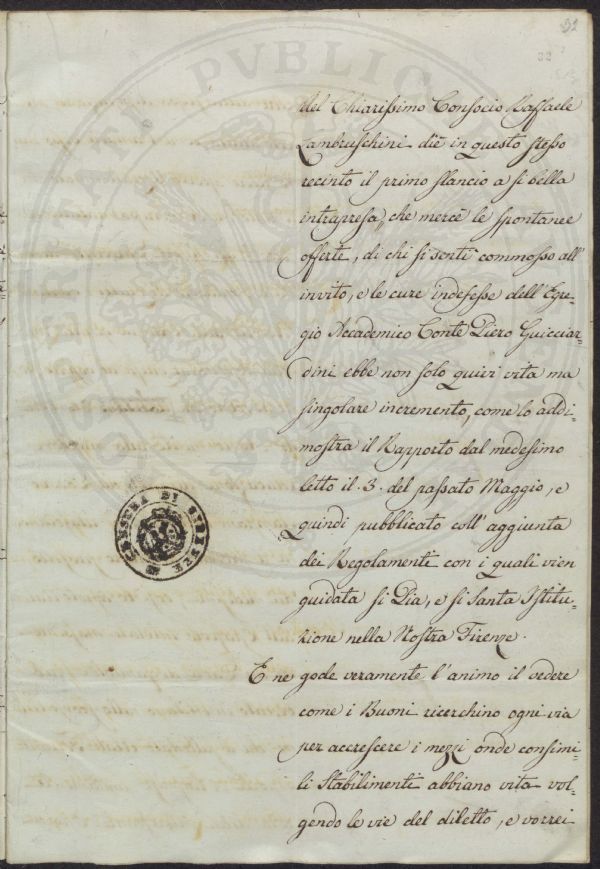 91
del Chiarissimo Consocio Raffaele
Lambruschini diè in questo stesso
recinto il primo slancio a sì bella
intrapresa, che mercè le spontanee
offerte, di chi si sentì commosso all'
invito, e le cure indefesse dell'Egre=
gio Accademico Conte Piero Guicciar=
dini ebbe non solo quivi vita ma
singolare incremento, come lo addi=
mostra il Rapporto dal medesimo
letto il .3. del passato Maggio, e
quindi pubblicato coll'aggiunta
dei Regolamenti con i quali vien
guidata sì Pia, e sì Santa Istitu=
zione nella Nostra Firenze.
E ne gode veramente l'animo il vedere
come i Buoni ricerchino ogni via
per accrescere i mezzi onde consimi=
li Stabilimenti abbiano vita vol=
gendo le vie del diletto, e vorrei
CENSURA DI FIRENZE